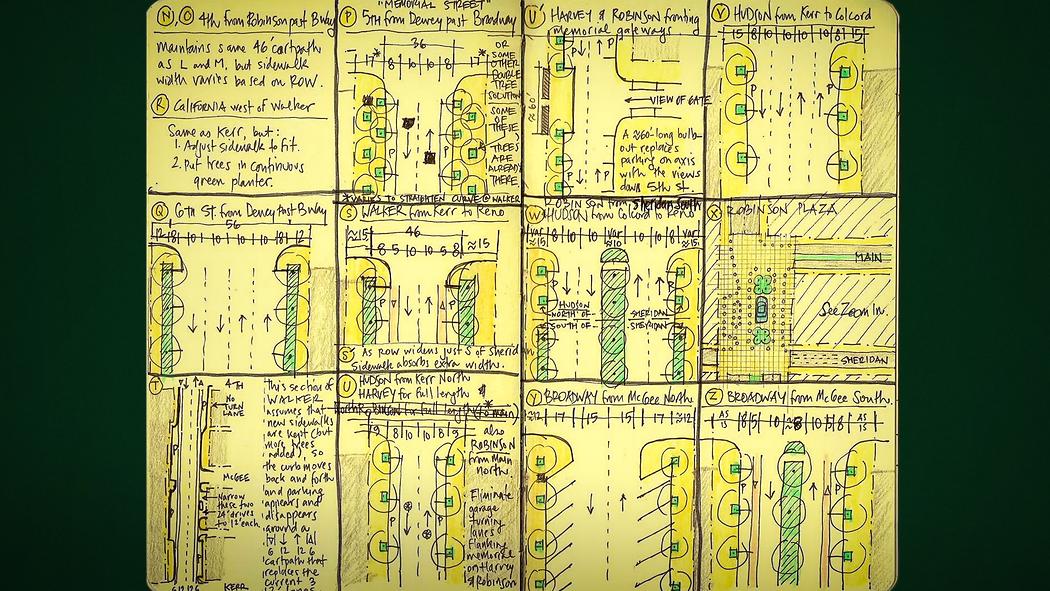 N, O 4th from Robinson past Bway
maintains same 46' cartpath
as L and M, but sidewalk
width varies based on ROW.
R CALIFORNIA west of Walker
Same as Kerr, but:
1. Adjust sidewalk to fit.
2. Put trees in continuous
green planter.
"MEMORIAL STREET"
P 5TH from Dewey past Broadway
36
17* 8 10 10 8 17*
OR
SOME
OTHER
DOUBLE
TREE
SOLUTION
SOME
OF
THESE
TREES
ARE
ALREADY
THERE.
P
P
*VARIES TO STRAIGHTEN CURVE @ WALKER
U' HARVEY & ROBINSON fronting
memorial gateways
P P
≈60'
VIEW OF GATE
A ≈60'-long bulb-
out replaces
parking on axis
with the views
down 5th St.
P P
Y HUDSON from Kerr to Colcord
15 8 10 10 10 10 8 15
P P
Q 6TH St. from Dewey Past Bway
56
12 8 10 10 10 10 8 12
P P
S WALKER from Kerr to Reno
≈15 46 ≈15
8 5 10 10 5 8
P P
S' As ROW widens just S of Sheridan
Sidewalk absorbs extra width.
ROBINSON from Sheridan South
W HUDSON from Colcord to Reno
var ≈15 8 10 10 var ≈10 10 10 8 var ≈15
P P
HUDSON
NORTH OF SHERIDAN
SOUTH OF SHERIDAN
X ROBINSON PLAZA
MAIN
See Zoom In.
SHERIDAN
T
4TH
NO
TURN
LANE
McGEE
Narrow
these two
24' drives
to 12' each.
KERR
This section of
WALKER
assumes that
new sidewalks
are kept (but
more trees
added), so
the curb moves
back and forth
and parking
appears and
disappears
around a
6 12 12 6
cartpath that
replaces the
current 3
U HUDSON from Kerr North
HARVEY for Full length &
9 8 10 10 8 9
P P
also
ROBINSON
from Main
north.
Eliminate
garage
turning
lanes
flanking
memorial
on Harvey
& Robinson
Y BROADWAY from McGee North.
≈12 17 15 15 17 ≈12
Z BROADWAY from McGee South.
AS IS 8 5 10 ≈8 10 5 8 AS IS
P P